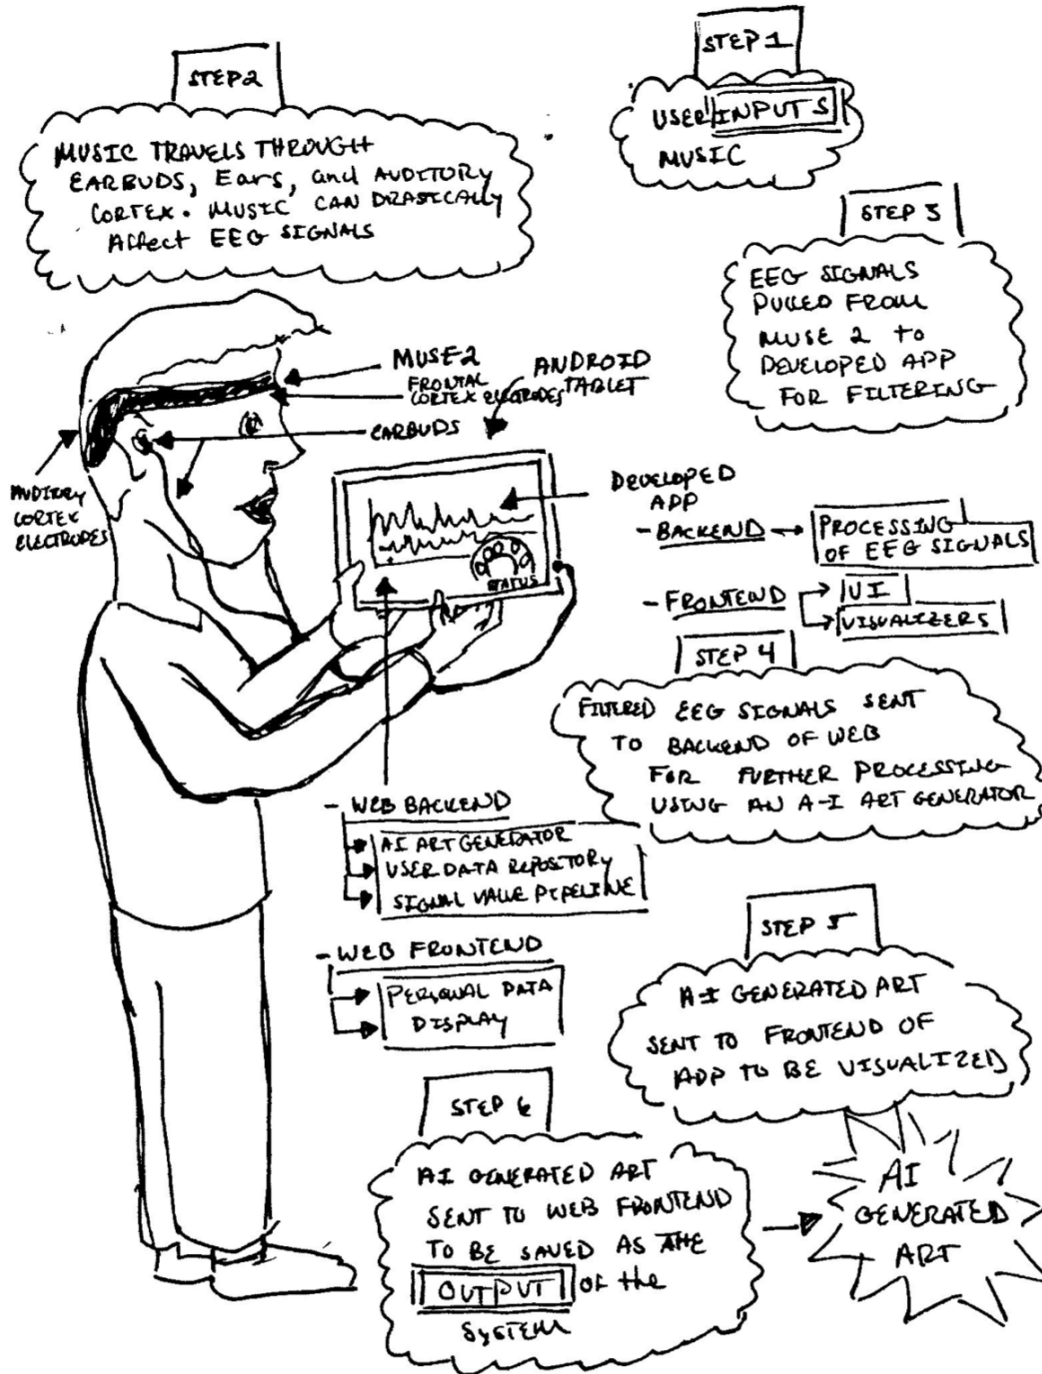 STEP 1
USER INPUTS
MUSIC
STEP 2
MUSIC TRAVELS THROUGH
EARBUDS, Ears, and AUDITORY
CORTEX. MUSIC CAN DRASTICALLY
Affect EEG SIGNALS
STEP 3
EEG SIGNALS
PULLED FROM
MUSE 2 to
DEVELOPED APP
FOR FILTERING
MUSE-2
FRONTAL
CORTEX ELECTRODES
EARBUDS
ANDROID
TABLET
AUDITORY
CORTEX
ELECTRODES
STATUS
DEVELOPED
APP
- BACKEND
PROCESSING
OF EEG SIGNALS
- FRONTEND
UI
VISUALIZERS
STEP 4
FILTERED EEG SIGNALS SENT
TO BACKEND OF WEB
FOR FURTHER PROCESSING
USING AN A-I ART GENERATOR
- WEB BACKEND
AI ART GENERATOR
USER DATA REPOSITORY
SIGNAL VALUE PIPELINE
- WEB FRONTEND
PERSONAL DATA
DISPLAY
STEP 5
A-I GENERATED ART
SENT TO FRONTEND OF
APP TO BE VISUALIZED
STEP 6
AI GENERATED ART
SENT TO WEB FRONTEND
TO BE SAVED AS THE
OUTPUT of the
SYSTEM
AI
GENERATED
ART